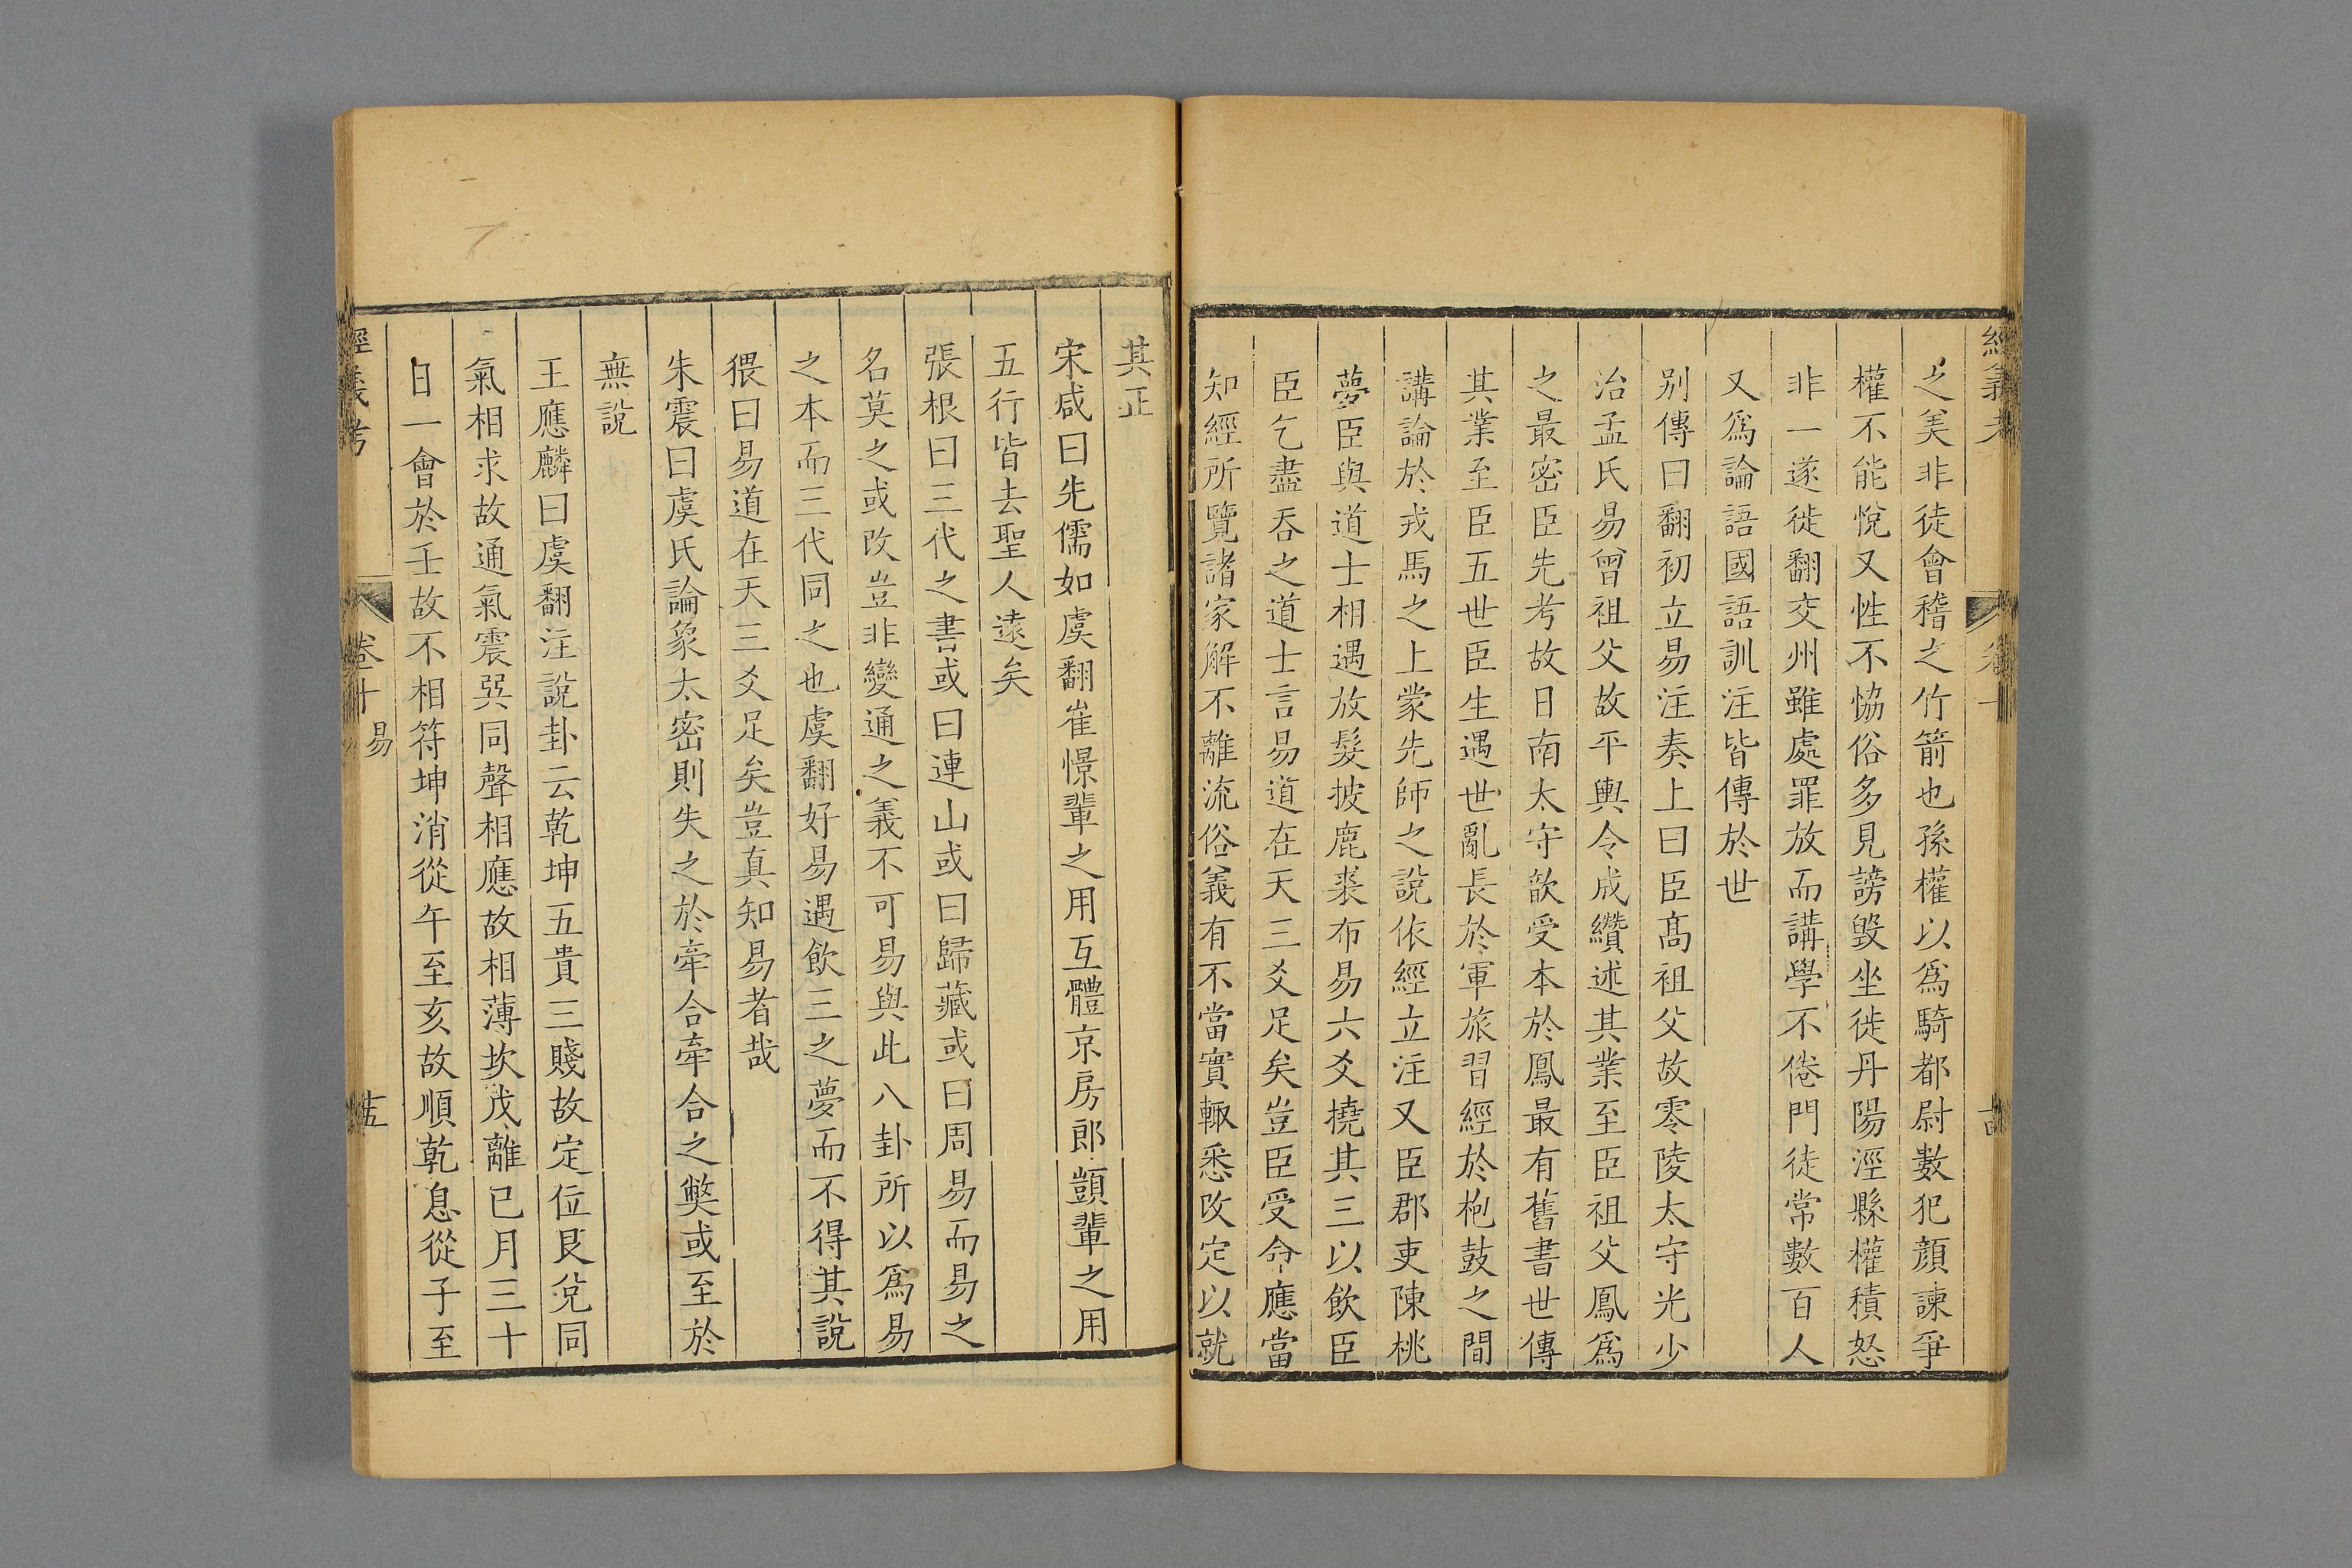 之美非徒會稽之竹箭也孫權以爲騎都尉數犯顔諫爭
權不能悅又性不恊俗多見謗毁坐徙丹陽涇縣權積怒
非一遂徙翻交州雖處罪放而講學不倦門徒常數百人
又爲論語國語訓注皆傳於世
别傳曰翻初立易注奏上曰臣髙祖父故零陵太守光少
治孟氏易曾祖父故平輿令成纘述其業至臣祖父鳳爲
之最密臣先考故日南太守歆受本於鳳最有舊書世傳
其業至臣五世臣生遇世亂長於軍旅習經於枹鼓之間
講論於戎馬之上蒙先師之說依經立注又臣郡吏陳桃
夢臣與道士相遇放髮披鹿裘布易六爻撓其三以飲臣
臣乞盡吞之道士言易道在天三爻足矣豈臣受命應當
知經所覽諸家解不離流俗義有不當實輙悉改定以就
其正
宋咸曰先儒如虞翻崔憬輩之用互體京房郎顗輩之用
五行皆去聖人遠矣
張根曰三代之書或曰連山或曰歸藏或曰周易而易之
名莫之或改豈非變通之義不可易與此八卦所以爲易
之本而三代同之也虞翻好易遇飲三之夢而不得其說
猥曰易道在天三爻足矣豈真知易者哉
朱震曰虞氏論象太密則失之於牽合牽合之弊或至於
無說
王應麟曰虞翻注說卦云乾坤五貴三賤故定位艮兌同
氣相求故通氣震巽同聲相應故相薄坎戊離已月三十
日一會於壬故不相符坤消從午至亥故順乾息從子至
經義考
卷十
易
十五